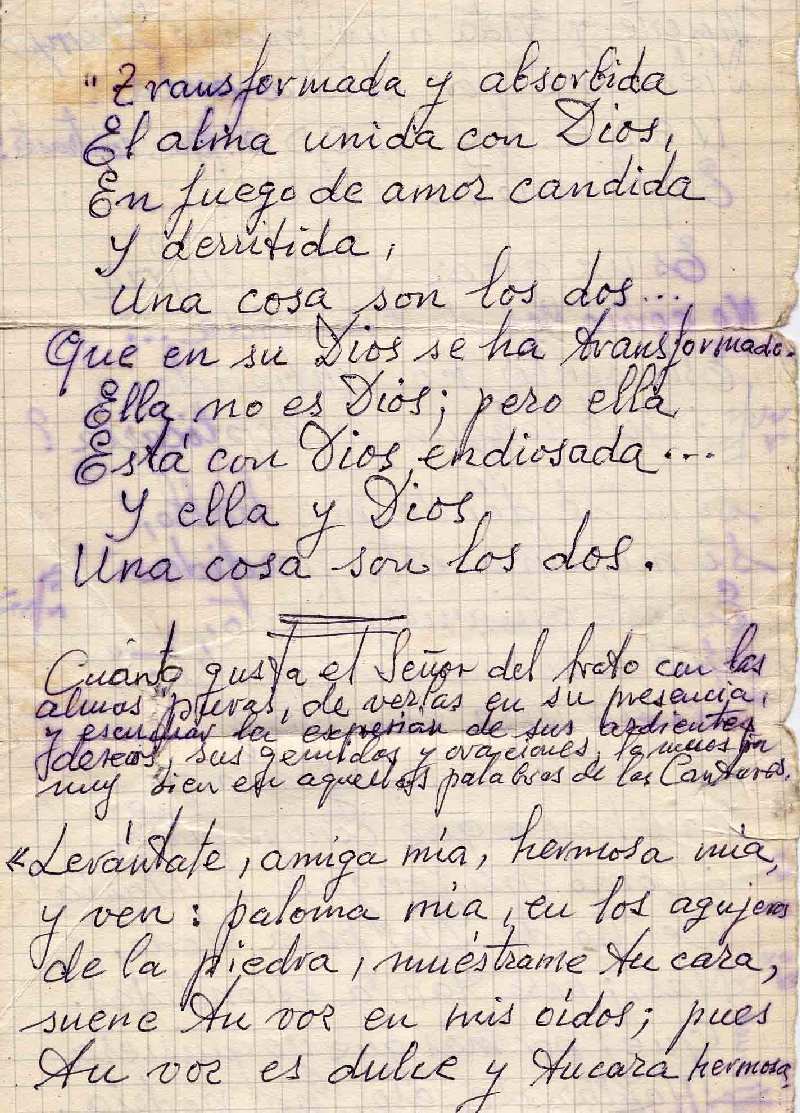 "Transformada y absorbida
El alma unida con Dios,
En fuego de amor candida
Y derritida,
Una cosa son los dos...
Que en su Dios se ha transformado.
Ella no es Dios; pero ella
Está con Dios endiosada...
Y ella y Dios
Una cosa son los dos.
Cuánto gusta el Señor del trato con las
almas puras, de verlas en su presencia,
y escuchar la expresian de sus ardientes
deseos, sus gemidos y oraciones,
muy bien en aquellas palabras de los Cantares.
«Levántate, amiga mía, hermosa mia,
y ven: paloma mia, en los agujeros
de la piedra, muéstrame tu cara,
suene tu voz en mis oídos; pues
tu voz es dulce y tu cara hermosa